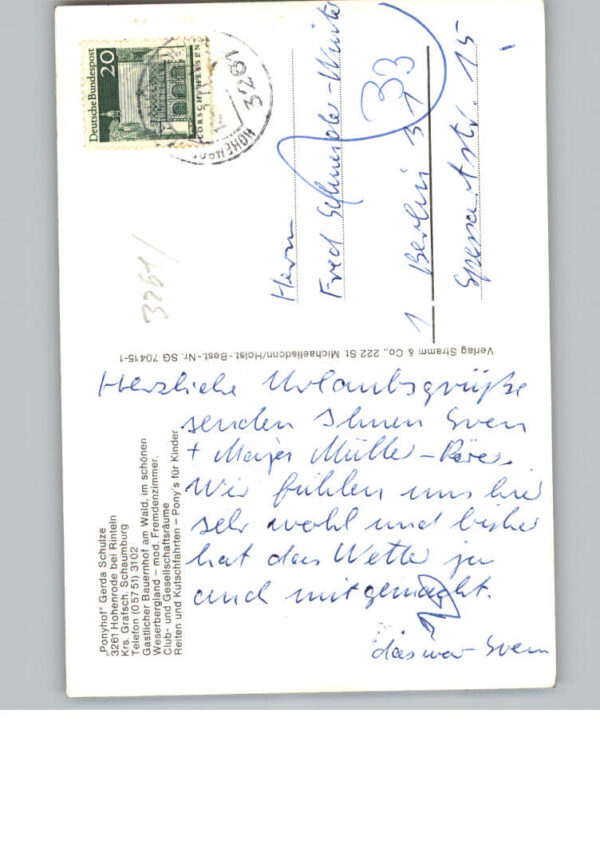 „Ponyhof" Gerda Schulze
3261 Hohenrode bei Rinteln
Krs. Grafsch. Schaumburg
Telefon (0 57 51) 3102
Gastlicher Bauernhof am Wald, im schönen
Weserbergland – mod. Fremdenzimmer,
Club- und Gesellschaftsräume
Reiten und Kutschfahrten – Pony's für Kinder
Herzliche Urlaubsgrüße
senden Ihnen Sven
+ Müller
Wir fühlen uns hier
sehr wohl und bisher
hat das Wetter ja
auch mitgemacht.
das war Sven
Verlag Stramm & Co., 222 St. Michaelisdonn/Holst.-Best.-Nr. SG 70415-1
Deutsche Bundespost
20
LORSCH/HESSEN
3261
3261/
Herrn
Fred
1 Berlin 33
33
Spessartstr. 15